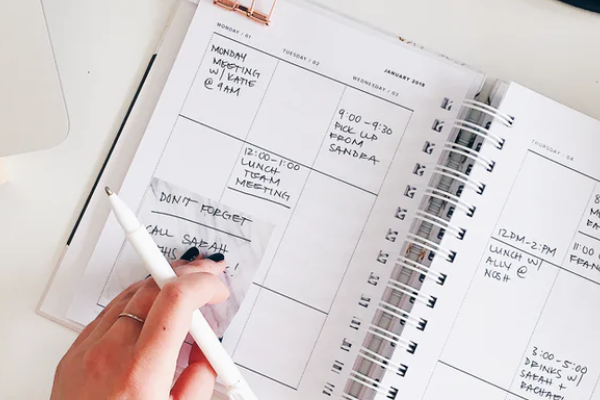 MONDAY / 01
TUESDAY / 02
WEDNESDAY / 03
JANUARY 2018
MONDAY
MEETING
W/ KATIE
@ 9AM
9:00-9:30
PICK UP
FROM
SANDRA
12:00-1:00
LUNCH
TEAM
MEETING
DON'T FORGET
CALL SARAH
THURSDAY / 04
12PM-2PM
LUNCH W/
ALLY @
NOSH
11:00
3:00-5:00
DRINKS W/
SARAH +